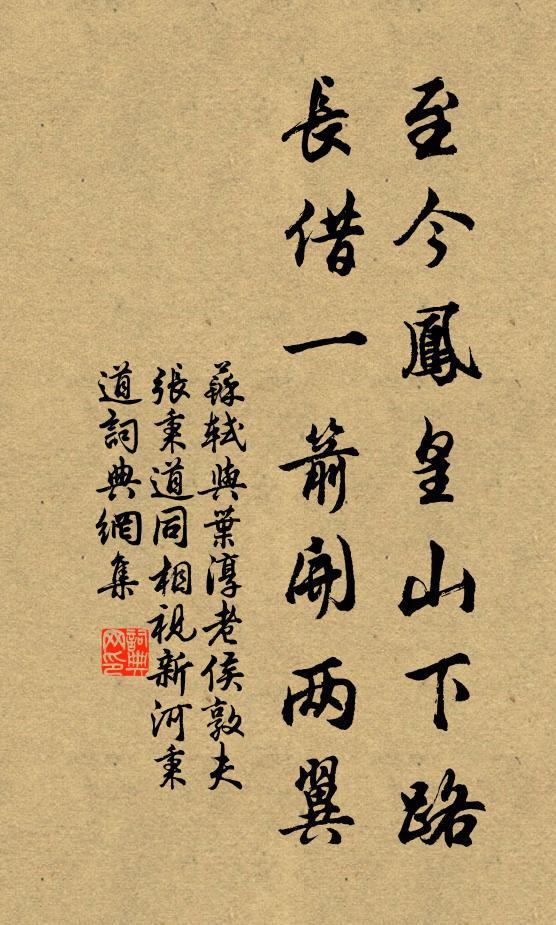 至今鳳皇山下路
長借一箭開两翼
蘇軾與葉淳老侯敦夫
張秉道同相視新河秉
道詞典網集
詞典网印